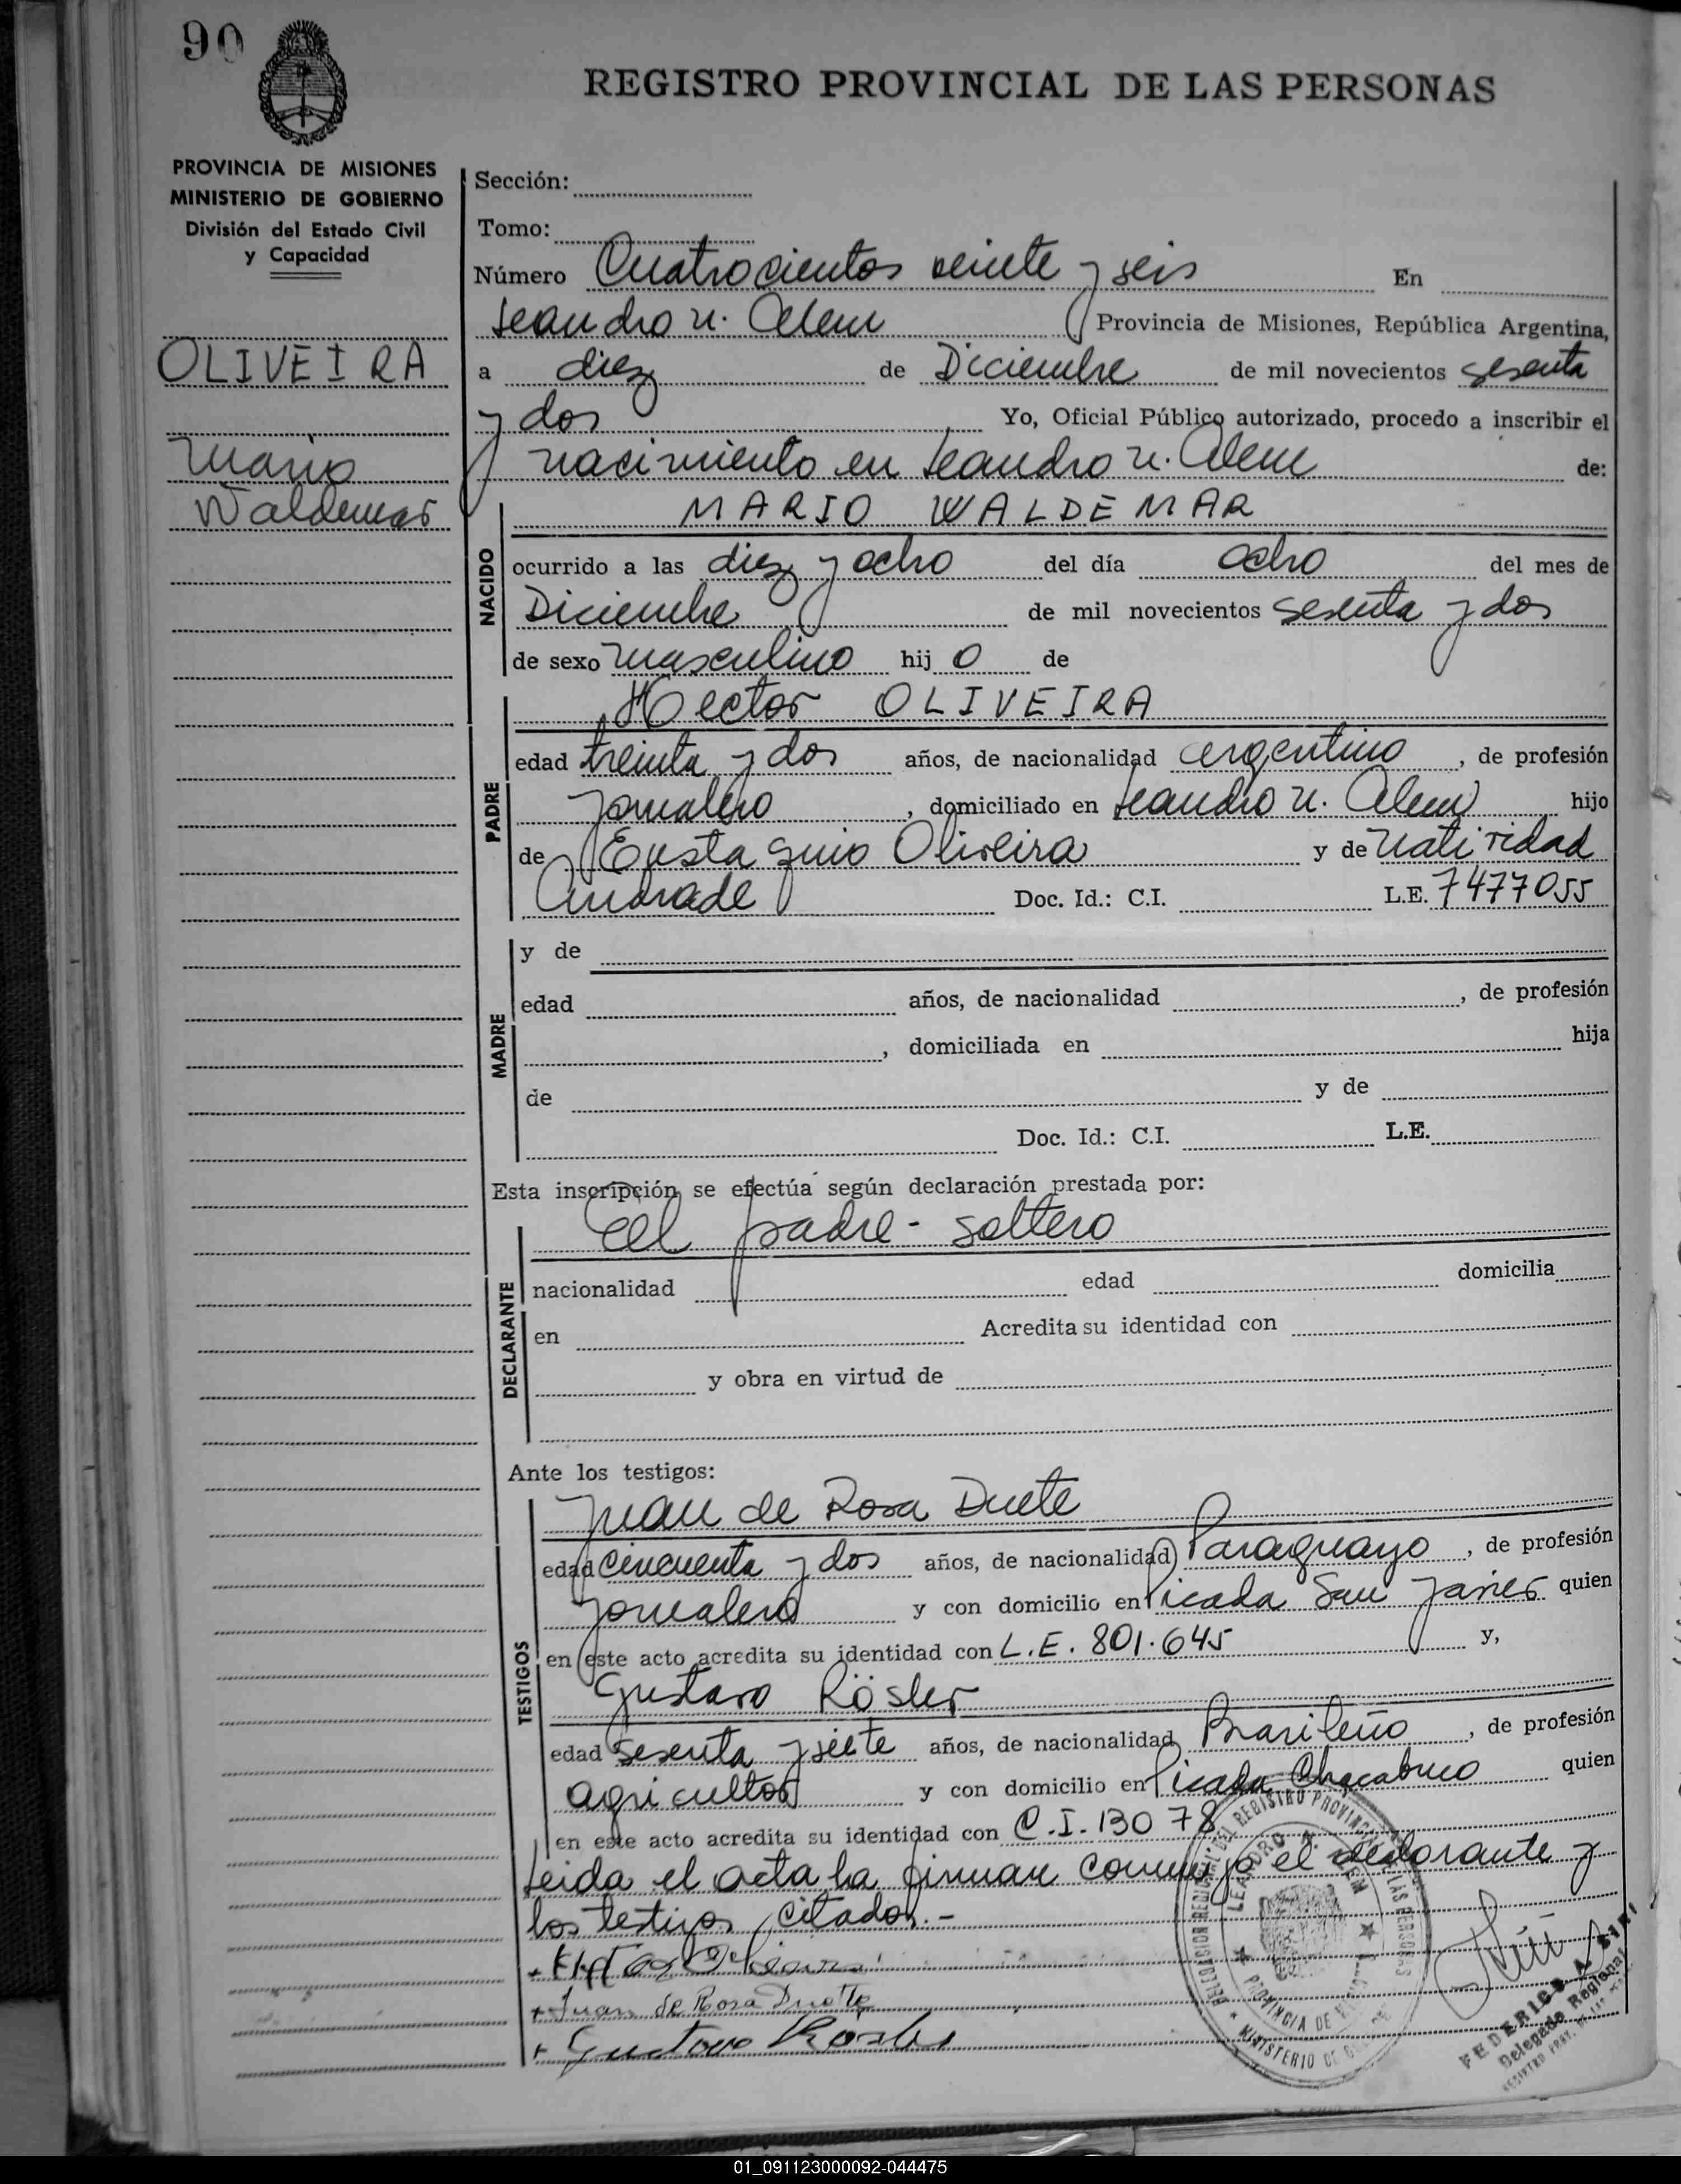 90
REGISTRO PROVINCIAL DE LAS PERSONAS
PROVINCIA DE MISIONES
MINISTERIO DE GOBIERNO
División del Estado Civil
y Capacidad
OLIVEIRA
Mario
Waldemar
Sección:
Tomo:
Número Cuatrocientos veinte y seis En
Leandro N. Alem Provincia de Misiones, República Argentina,
a diez de Diciembre de mil novecientos sesenta
y dos Yo, Oficial Público autorizado, procedo a inscribir el
nacimiento en Leandro N. Alem de:
NACIDO
MARIO WALDEMAR
ocurrido a las diez y ocho del día ocho del mes de
Diciembre de mil novecientos sesenta y dos
de sexo masculino hijo de
PADRE
Hector OLIVEIRA
edad treinta y dos años, de nacionalidad argentino, de profesión
jornalero, domiciliado en Leandro N. Alem hijo
de Eustaquio Oliveira y de Natividad
Andrade Doc. Id.: C.I. L.E. 7477055
MADRE
y de
edad años, de nacionalidad , de profesión
, domiciliada en hija
de y de
Doc. Id.: C.I. L.E.
Esta inscripción se efectúa según declaración prestada por:
DECLARANTE
el padre - soltero
nacionalidad edad domicilia
en Acredita su identidad con
y obra en virtud de
Ante los testigos:
TESTIGOS
Juan de Rosa Duete
edad cincuenta y dos años, de nacionalidad Paraguayo, de profesión
jornalero y con domicilio en Picada San Javier quien
en este acto acredita su identidad con L.E. 801.645 y,
Gustavo Rösler
edad sesenta y siete años, de nacionalidad Brasileño, de profesión
agricultor y con domicilio en Picada Chacabuco quien
en este acto acredita su identidad con C.I. 13078
Leida el acta la firman conmigo el declarante y
los testigos citados.-
+ Juan de Rosa Duette
+ Gustavo Rösler
DEL REGISTRO PROVINCIAL DE LAS PERSONAS
LEANDRO N. ALEM
PROVINCIA DE
MINISTERIO DE
FEDERICO A.
Delegado Regional
01_091123000092-044475